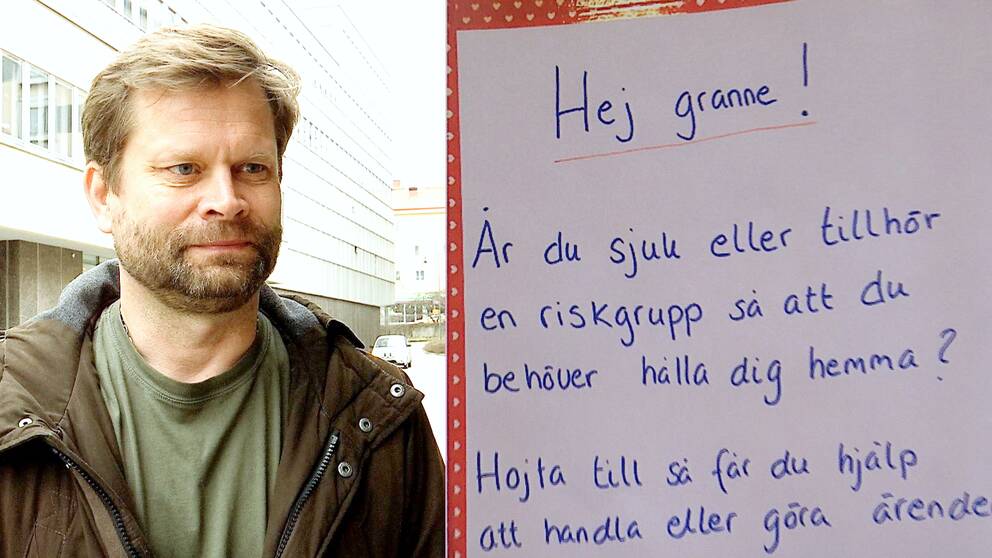 Hej granne!
Är du sjuk eller tillhör
en riskgrupp så att du
behöver hålla dig hemma?
Hojta till så får du hjälp
att handla eller göra ärende